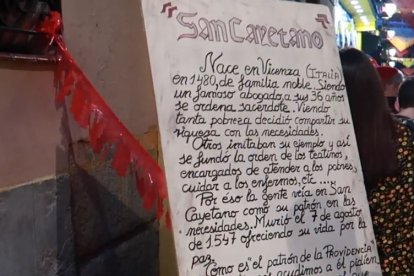 San Cayetano
Nace en Vicenza (ITALIA)
en 1480, de familia noble. Siendo
un famoso abogado, a sus 36 años
se ordena sacerdote. Viendo
tanta pobreza decidió compartir su
riqueza con las necesidades.
Otros imitaban su ejemplo y así
se fundó la orden de los teatinos,
encargados de atender a los pobres,
cuidar a los enfermos, etc ....
Por eso la gente veía en San
Cayetano como su patrón en las
necesidades. Murió el 7 de agosto
de 1547 ofreciendo su vida por la
paz.
Como es "el patrón de la PROVIDENCIA"
acudimos a él